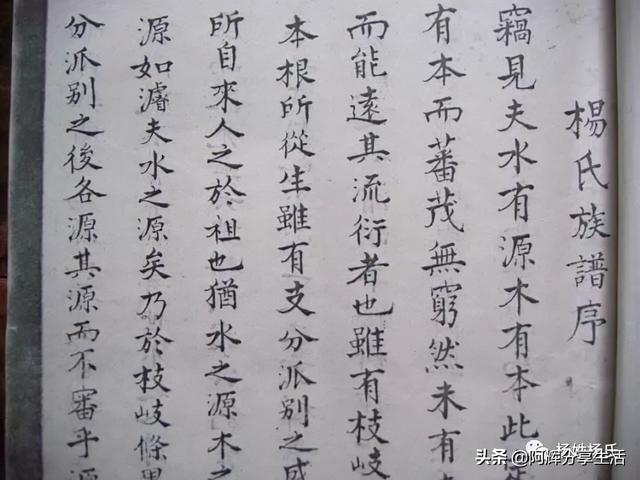 楊氏族譜序
竊見夫水有源木有本此
有本而蕃茂無窮然未有
而能遠其流衍者也雖有枝岐
本根所從生雖有支分派別之盛
所自來人之於祖也猶水之源木之
源如濬夫水之源矣乃於枝岐條
分派别之後各源其源而不審乎源
杨姓杨氏
头条 @阿辉分享生活